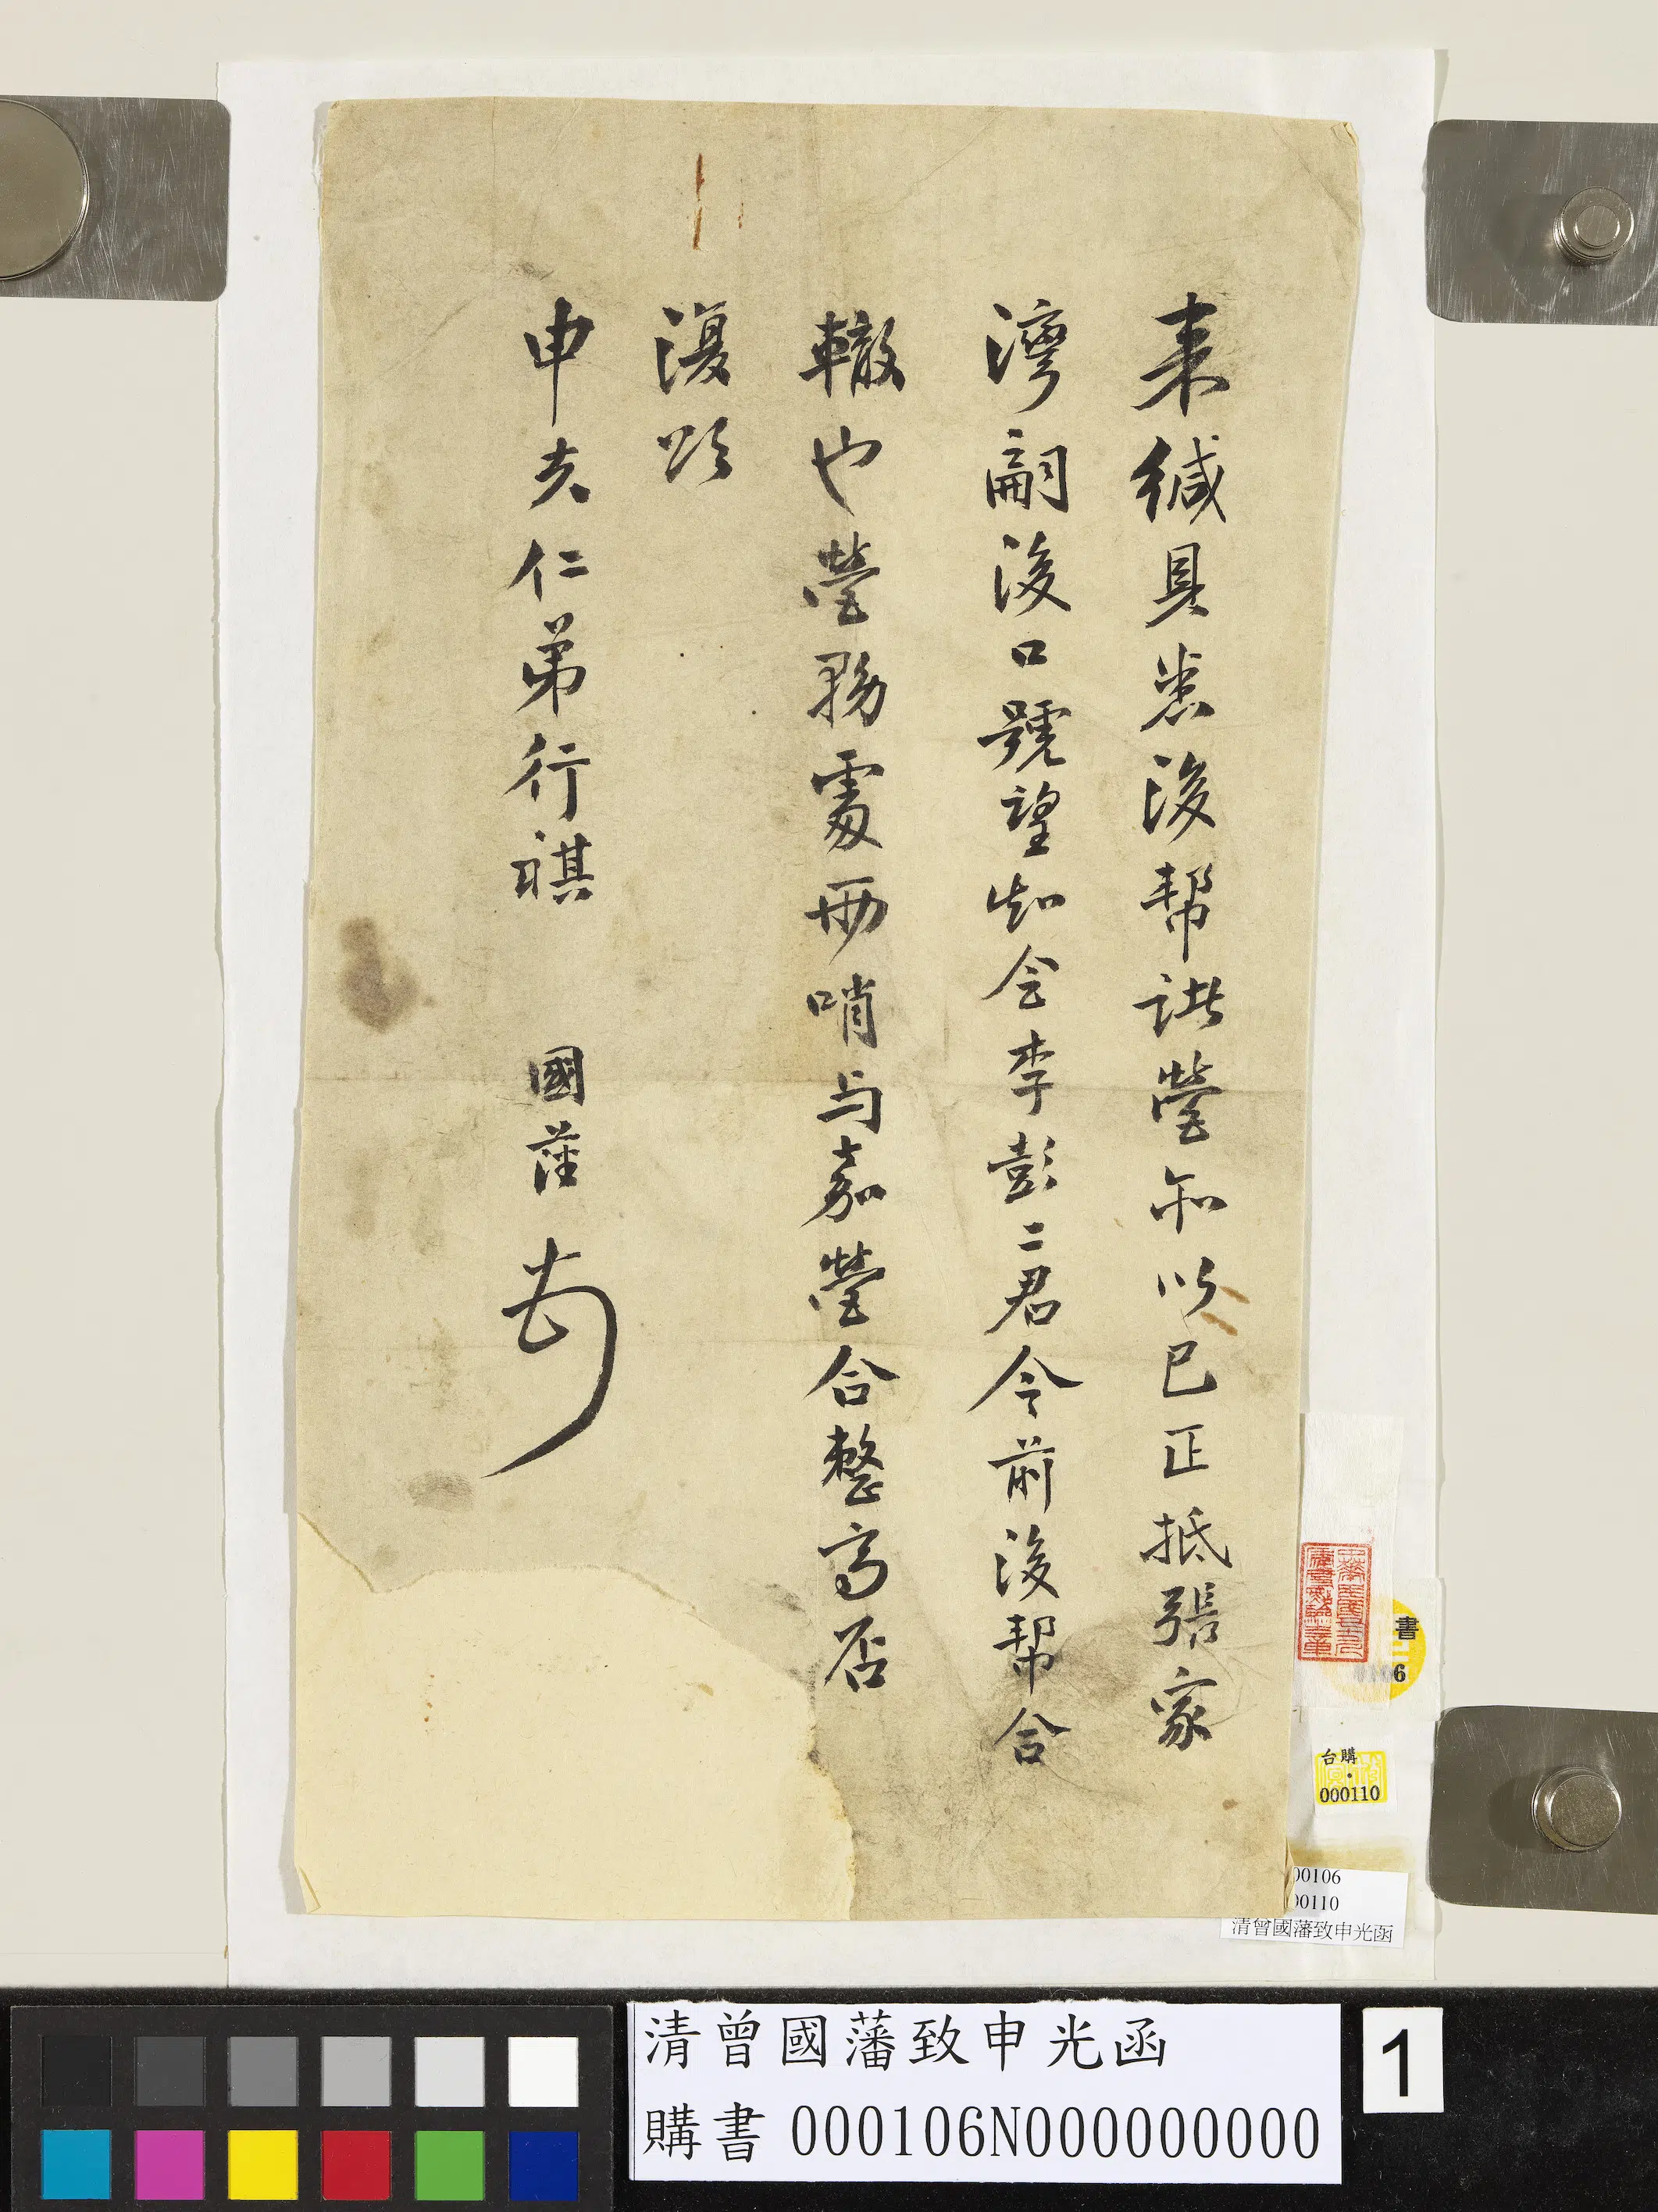 来緘具悉後帮訿營和以巳正抵張家
灣嗣後口號望知會李彭二君令前後帮合
轍也營務處兩哨与嘉營合整齊否
復頌
申夫仁弟行祺 國藩
書
6
台購
000110
00106
00110
清曾國藩致申光函
清曾國藩致申光函
購書 000106N000000000
1